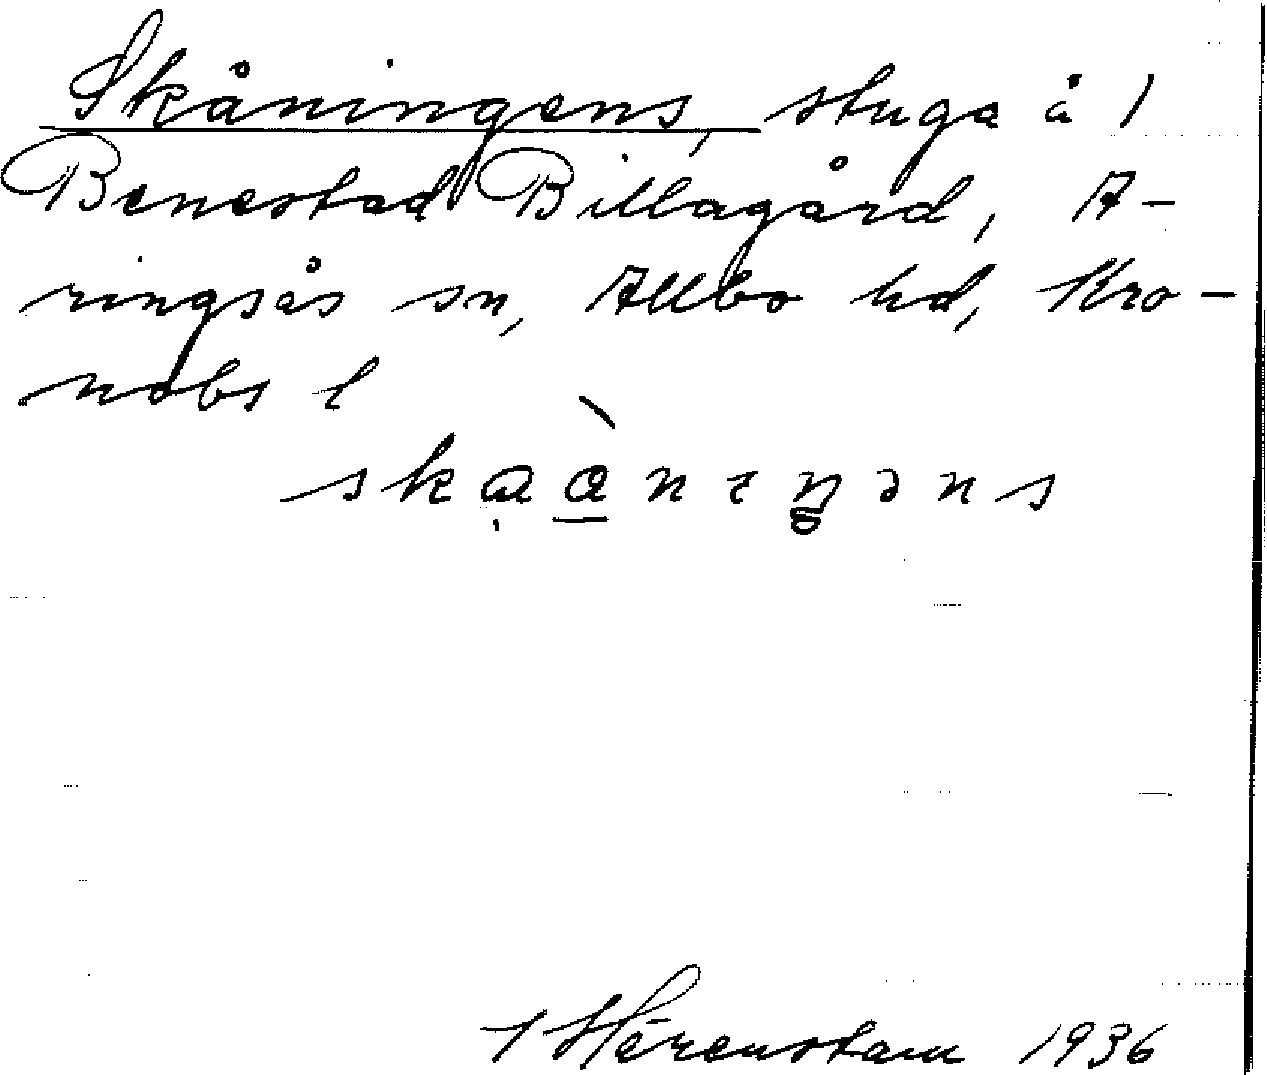 Skåningens, stuga å 1
Benestad Billagård, A-
ringsås sn, Allbo hd, Kro-
nobs l
skɑɑ̀nıŋəns
1936